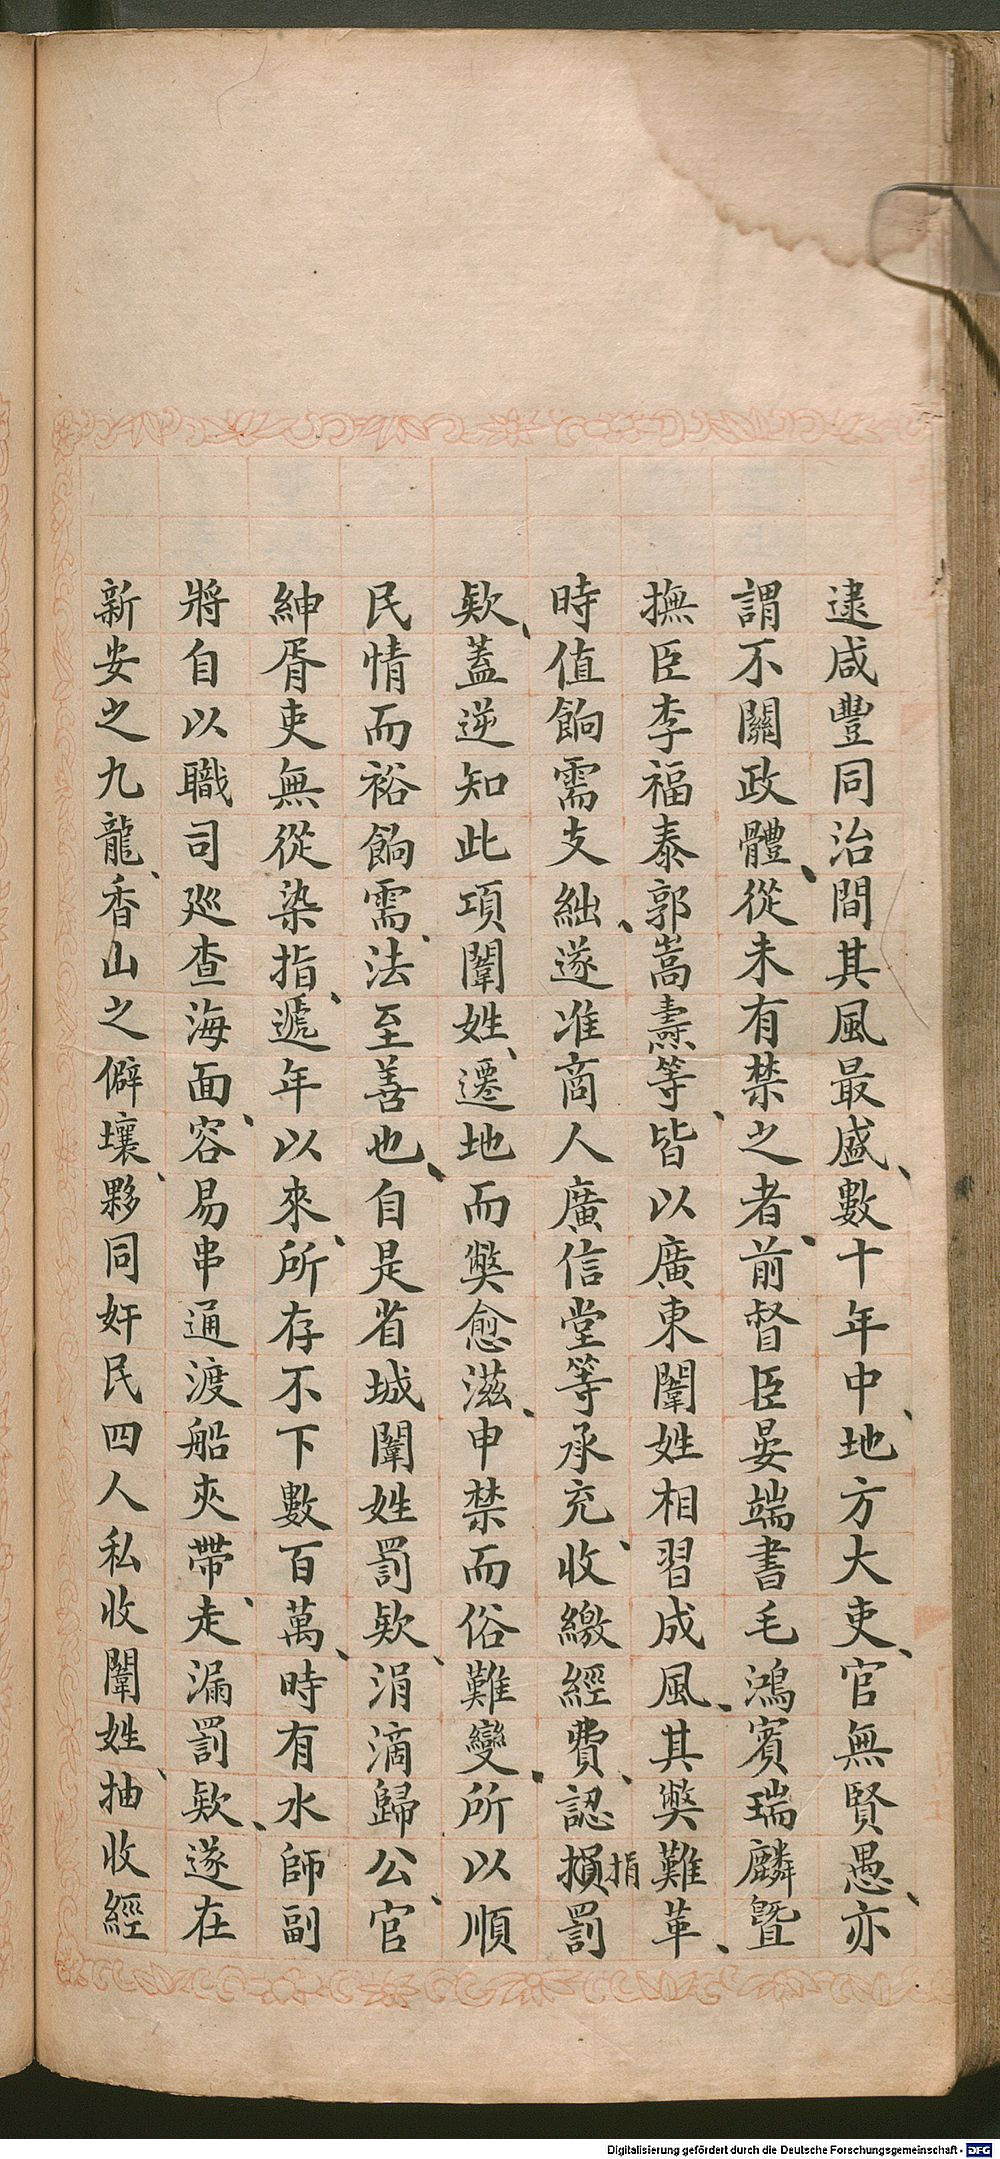 逮咸豐同治間其風最盛、數十年中、地方大吏、官無賢愚、亦
謂不關政體、從未有禁之者、前督臣晏端書毛鴻賓瑞麟曁
撫臣李福泰郭嵩燾等、皆以廣東闈姓相習成風、其獘難革、
時值餉需支絀、遂准商人廣信堂等承充、收繳經費、認損罰
捐
欵、蓋逆知此項闈姓、遷地而獘愈滋、申禁而俗難變、所以順
民情而裕餉需、法至善也、自是省城闈姓罰欵、涓滴歸公、官
紳胥吏無從染指、遞年以來、所存不下數百萬、時有水師副
將自以職司廵查海面、容易串通渡船夾帶、走漏罰欵、遂在
新安之九龍、香山之僻壤、夥同奸民四人私收闈姓、抽收經
Digitalisierung gefördert durch die Deutsche Forschungsgemeinschaft - DFG